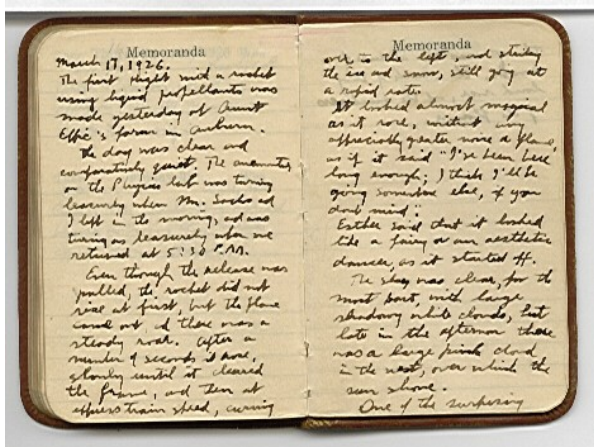 Memoranda
March 17, 1926.
The first flight with a rocket
using liquid propellants was
made yesterday at Aunt
Effie's farm in Auburn.
The day was clear and
comparatively quiet. The anemometer
on the Physics lab was turning
leisurely when Mr. Sachs and
I left in the morning, and was
turning as leisurely when we
returned at 5:30 P.M.
Even though the release was
pulled, the rocket did not
rise at first, but the flame
came out, and there was a
steady roar. After a
number of seconds it rose,
slowly until it cleared
the frame, and then at
express train speed, curving
Memoranda
over to the left, and striking
the ice and snow, still going at
a rapid rate.
It looked almost magical
as it rose, without any
appreciably greater noise or flame,
as if it said "I've been here
long enough; I think I'll be
going somewhere else, if you
don't mind."
Esther said that it looked
like a fairy or an aesthetic
dancer, as it started off.
The sky was clear, for the
most part, with large
shadowy white clouds, but
late in the afternoon there
was a large pink cloud
in the west, over which the
sun shone.
One of the surprising